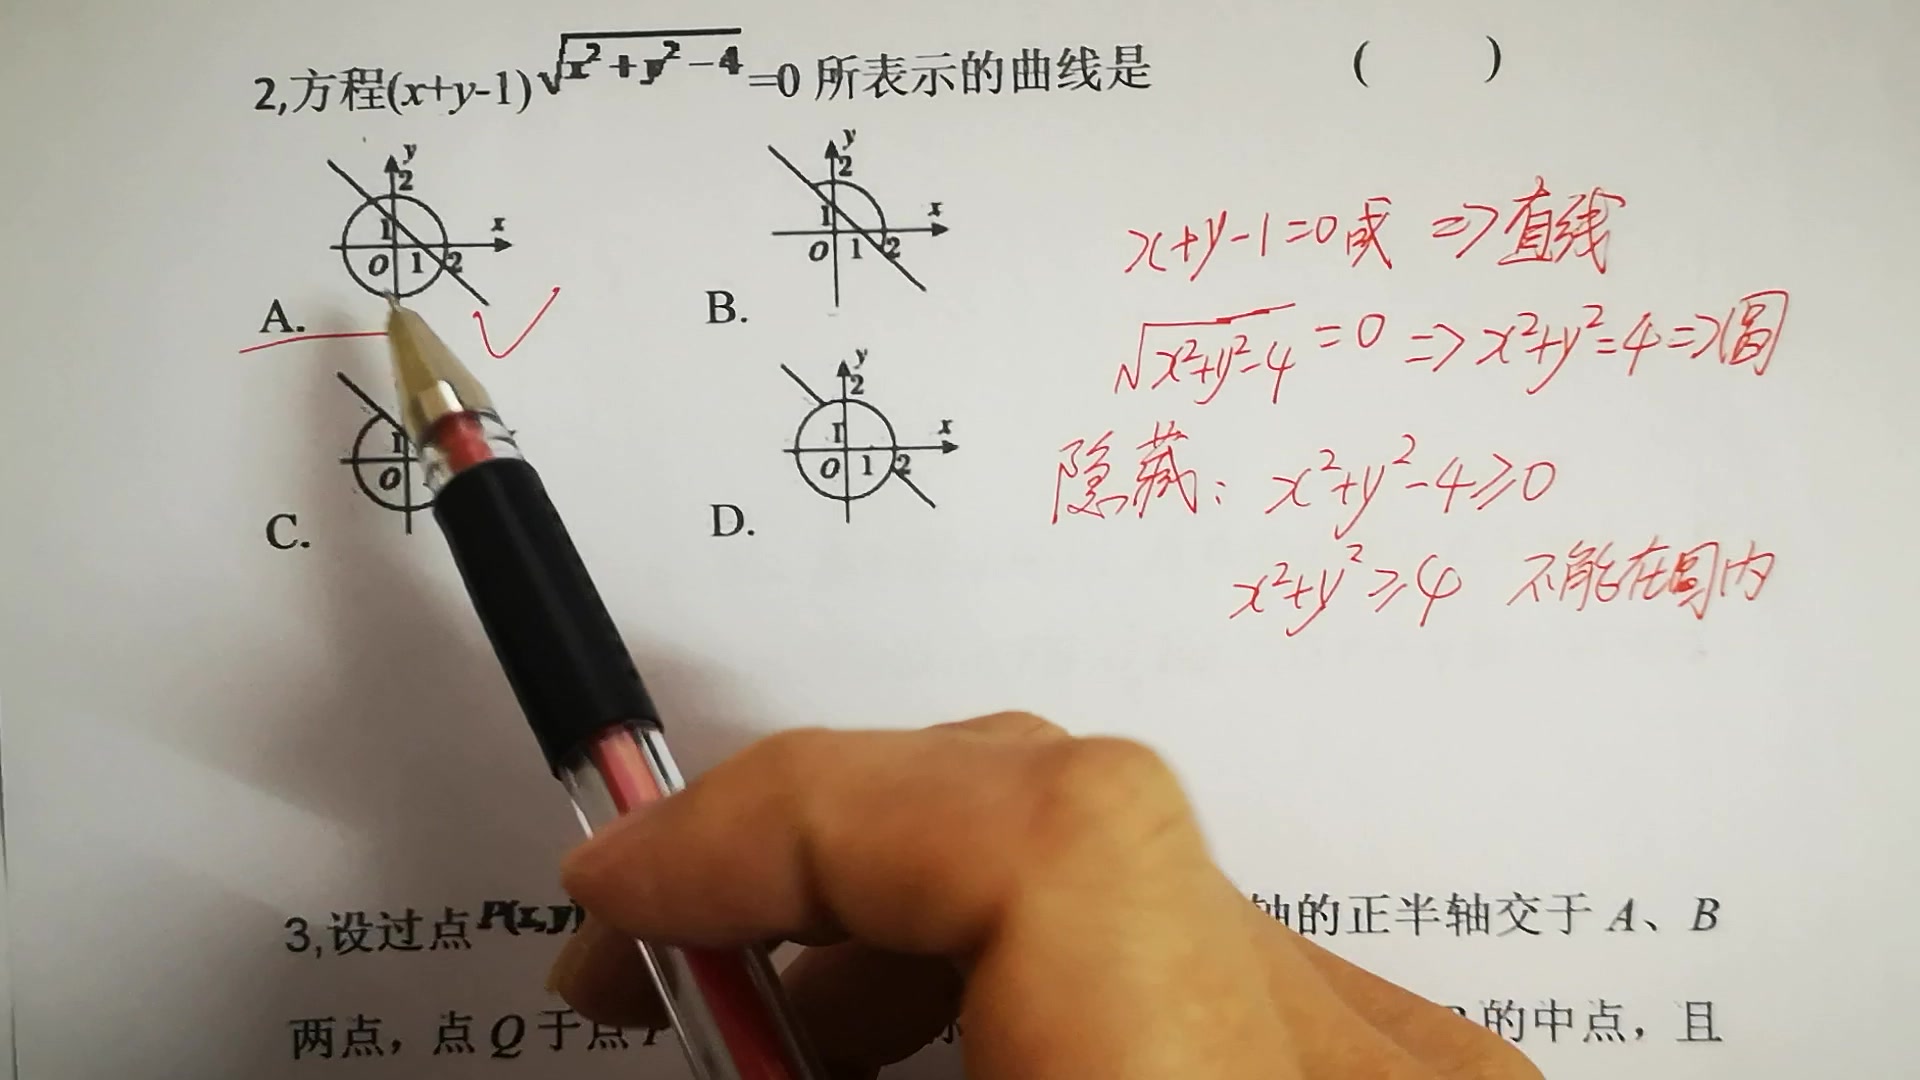 2,方程(x+y-1)√x²+y²-4=0 所表示的曲线是 ( )
y 2 1 O 1 2 x
A.
y 2 1 O 1 2 x
B.
1 O
C.
y 2 1 O 1 2 x
D.
x+y-1=0或 => 直线
√x²+y²-4 =0 => x²+y²=4 => 圆
隐藏: x²+y²-4≥0
x²+y²≥4 不能在圆内
3,设过点P(x,y) 轴的正半轴交于 A、B
两点，点 Q 于点 的中点，且